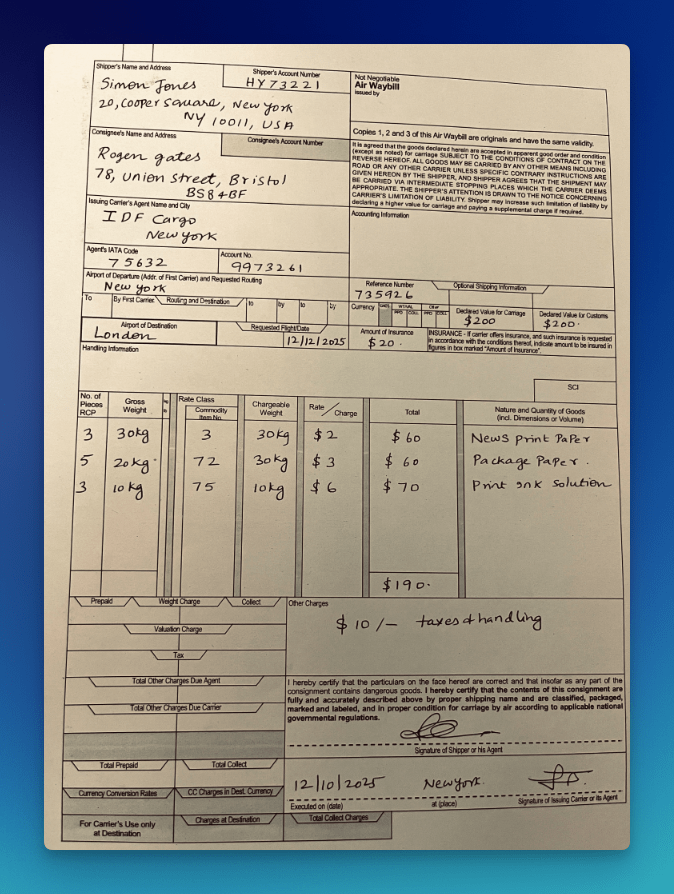 Shipper's Name and Address
Shipper's Account Number
HY73221
Simon Jones
20, Cooper Square, New york
NY 10011, USA
Not Negotiable
Air Waybill
Issued by
Copies 1, 2 and 3 of this Air Waybill are originals and have the same validity.
Consignee's Name and Address
Consignee's Account Number
Rogen gates
78, Union Street, Bristol
BS8 4BF
It is agreed that the goods declared herein are accepted in apparent good order and condition
(except as noted) for carriage SUBJECT TO THE CONDITIONS OF CONTRACT ON THE
REVERSE HEREOF. ALL GOODS MAY BE CARRIED BY ANY OTHER MEANS INCLUDING
ROAD OR ANY OTHER CARRIER UNLESS SPECIFIC CONTRARY INSTRUCTIONS ARE
GIVEN HEREON BY THE SHIPPER, AND SHIPPER AGREES THAT THE SHIPMENT MAY
BE CARRIED VIA INTERMEDIATE STOPPING PLACES WHICH THE CARRIER DEEMS
APPROPRIATE. THE SHIPPER'S ATTENTION IS DRAWN TO THE NOTICE CONCERNING
CARRIER'S LIMITATION OF LIABILITY. Shipper may increase such limitation of liability by
declaring a higher value for carriage and paying a supplemental charge if required.
Issuing Carrier's Agent Name and City
IDF Cargo
New york
Accounting Information
Agent's IATA Code
75632
Account No.
9973261
Airport of Departure (Addr. of First Carrier) and Requested Routing
New york
Reference Number
735926
Optional Shipping Information
To
By First Carrier
Routing and Destination
to
by
to
by
Currency
Declared Value for Carriage
$200
Declared Value for Customs
$200.
Airport of Destination
London
Requested Flight/Date
12/12/2025
Amount of Insurance
$20.
INSURANCE - If carrier offers insurance, and such insurance is requested
in accordance with the conditions thereof, indicate amount to be insured in
figures in box marked "Amount of Insurance".
Handling Information
SCI
No. of Pieces RCP
Gross Weight
Rate Class
Commodity Item No.
Chargeable Weight
Rate / Charge
Total
Nature and Quantity of Goods (incl. Dimensions or Volume)
3 30kg 3 30kg $2 $60 News Print Paper
5 20kg 72 30kg $3 $60 Package Paper.
3 10kg 75 10kg $6 $70 Print Ink Solution
$190.
Prepaid
Weight Charge
Collect
Other Charges
$10/- taxes & handling
Valuation Charge
Tax
Total Other Charges Due Agent
Total Other Charges Due Carrier
I hereby certify that the particulars on the face hereof are correct and that insofar as any part of the
consignment contains dangerous goods. I hereby certify that the contents of this consignment are
fully and accurately described above by proper shipping name and are classified, packaged,
marked and labeled, and in proper condition for carriage by air according to applicable national
governmental regulations.
Signature of Shipper or his Agent
Total Prepaid
Total Collect
Currency Conversion Rates
CC Charges in Dest. Currency
12/10/2025
New york.
Executed on (date)
at (place)
Signature of Issuing Carrier or its Agent
For Carrier's Use only
at Destination
Charges at Destination
Total Collect Charges